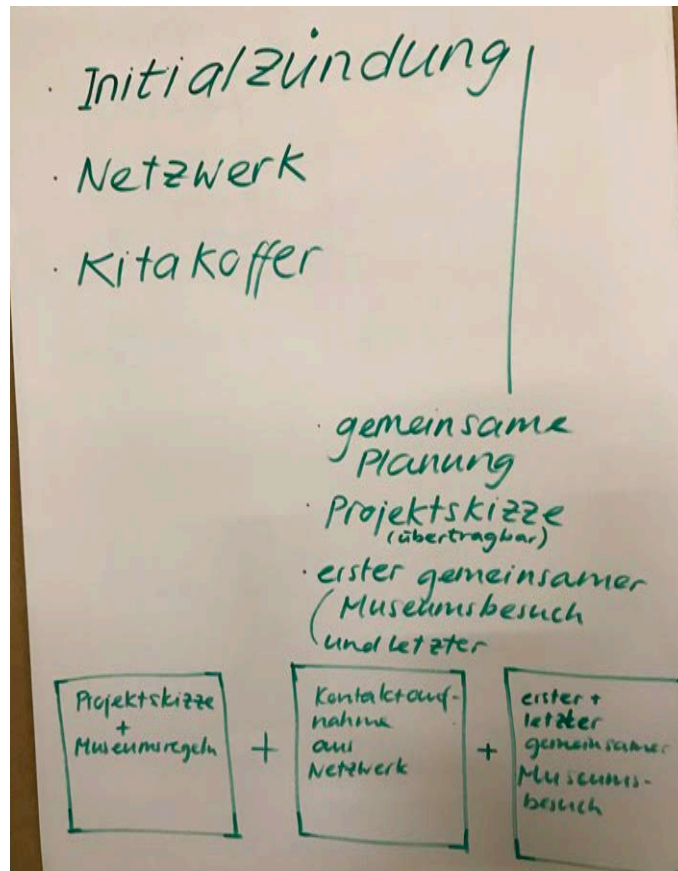 · Initialzündung
· Netzwerk
· Kitakoffer
· gemeinsame
Planung
· Projektskizze
(übertragbar)
· erster gemeinsamer
( Museumsbesuch
und letzter
Projektskizze
+
Museumsregeln
+
Kontaktauf-
nahme
aus
Netzwerk
+
erster +
letzter
gemeinsamer
Museums-
besuch